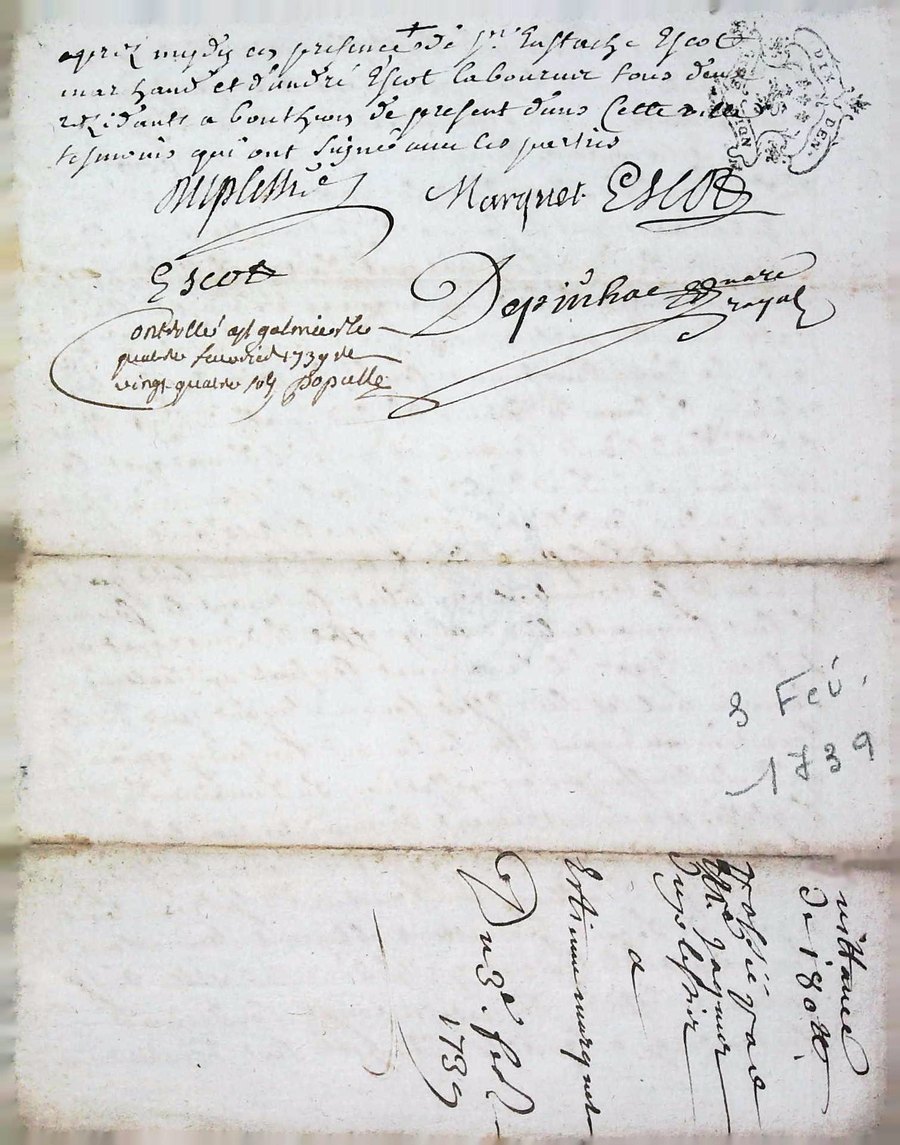 apres mydy en presence de sr Eustache Escot
marchand et d'andré Escot laboureur tous deux
residants a bouthon de present dans Cette ville
tesmoins qui ont signé avec les parties
Duplessié
Marquet Escot
Escot
Depinhac nore royal
Controllé a st galmier le
quatre fevrier 1739 re
vingt quatre sols populle
DIX DEN.
3 Fev.
1739
uittance
De 180ll
passé par
Mre Jaques
Duplessie
a
Estienne marquet
Du 3e feb.
1739